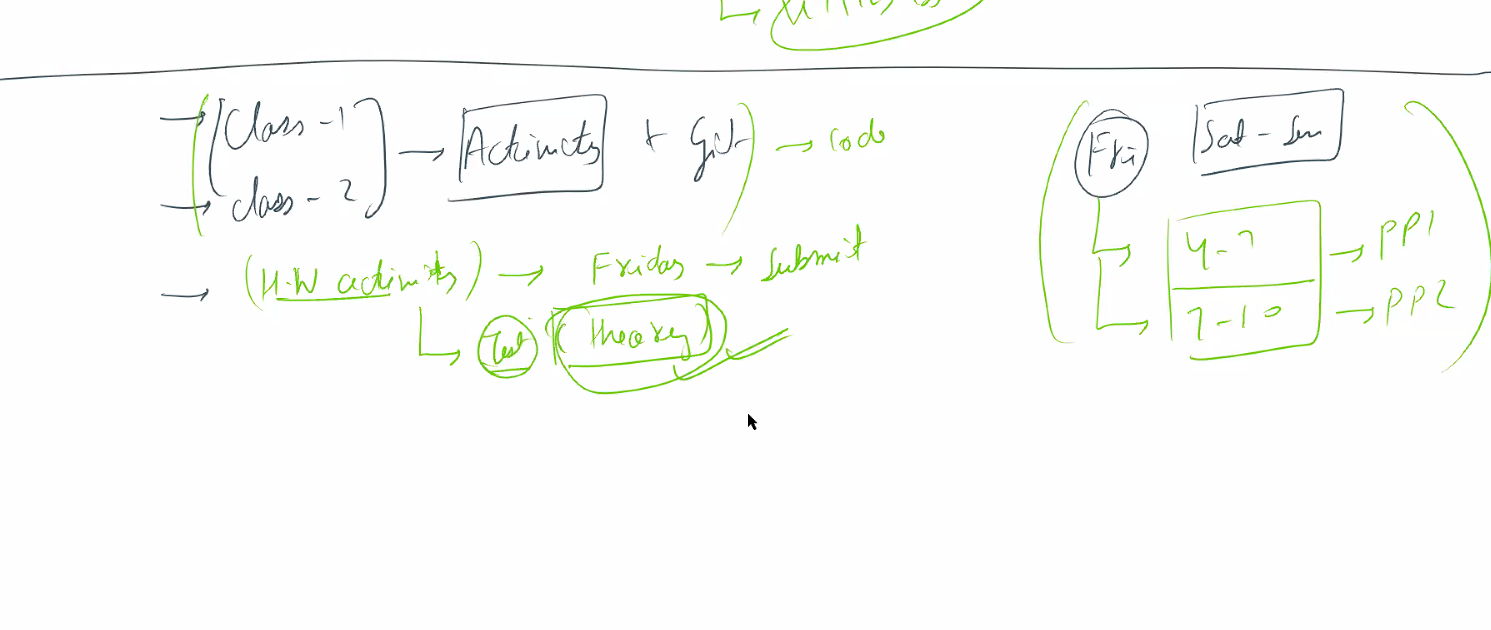 Class-1
class-2
→ Activity + Git → Code
(H.W activity) → Friday → Submit
Test (theory)
Fri Sat - Sun
4-7 → PP1
7-10 → PP2